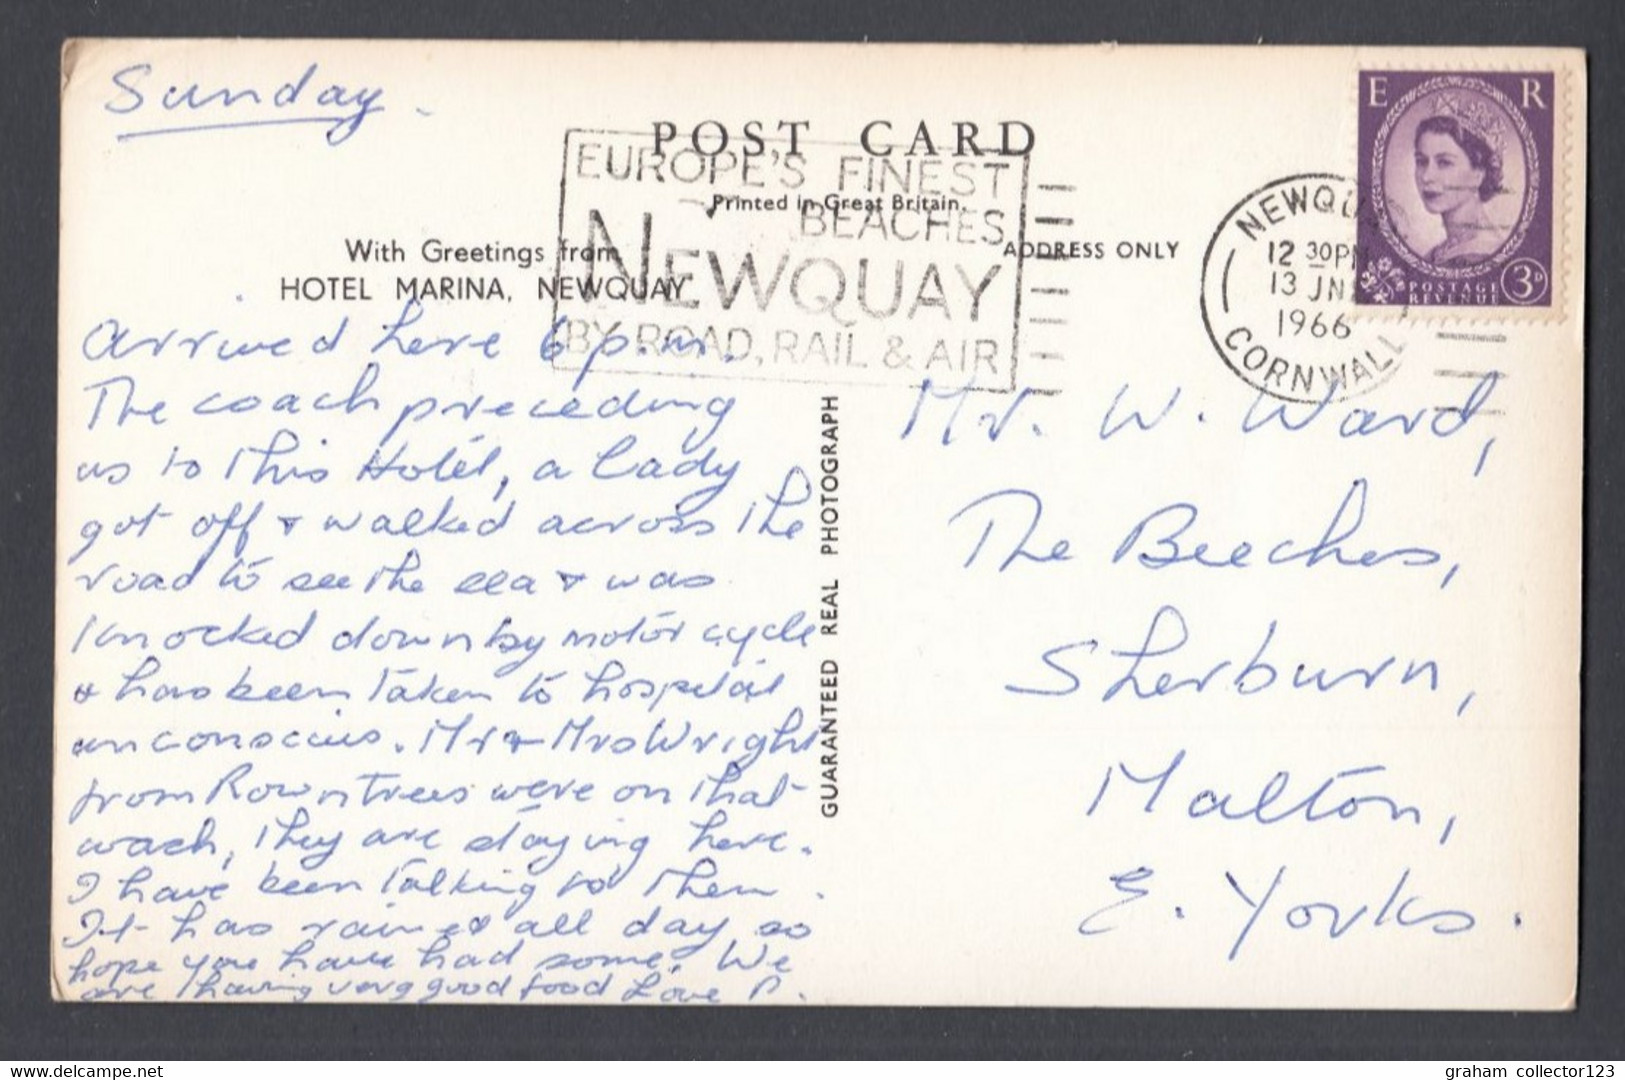 Sunday.
POST CARD
EUROPE'S FINEST
BEACHES
NEWQUAY
BY ROAD, RAIL & AIR
Printed in Great Britain.
With Greetings from
HOTEL MARINA, NEWQUAY
ADDRESS ONLY
E R
POSTAGE
REVENUE
3D
NEWQUAY
12 30PM
13 JNE
1966
CORNWALL
arrived here 6 p.m.
The coach preceding
us to this Hotel, a lady
got off & walked across the
road to see the sea & was
knocked down by motor cycle
& has been taken to hospital
unconscious. Mr & Mrs Wright
from Rowntrees were on that
coach, they are staying here.
I have been talking to them.
It has rained all day so
hope you have had some. We
are having very good food Love P.
GUARANTEED REAL PHOTOGRAPH
Mr. W. Ward,
The Beeches,
Sherburn,
Malton,
E. Yorks.
graham collector123